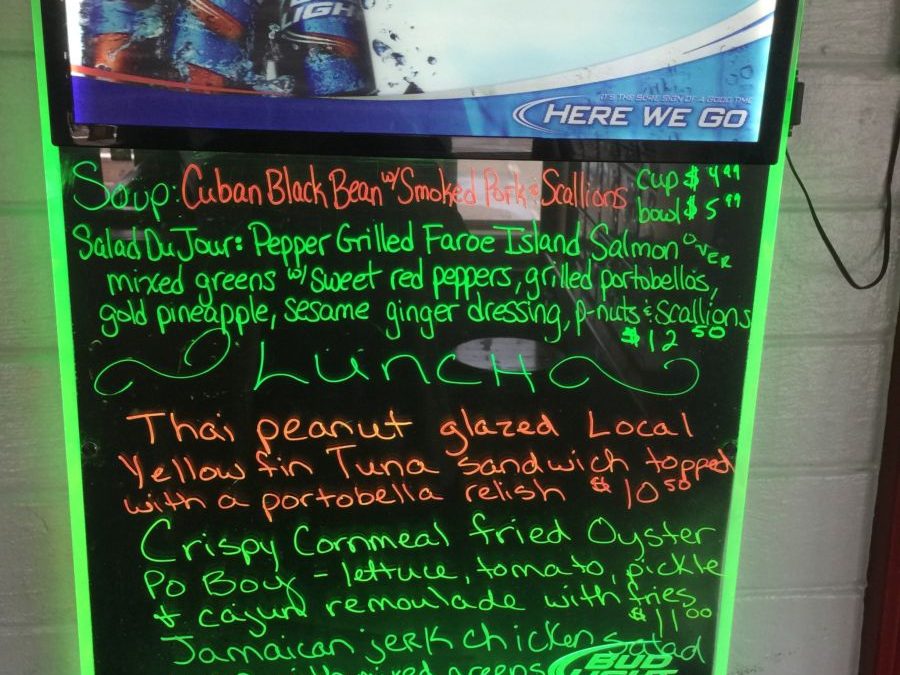 LIGHT
IT'S THE SURE SIGN OF A GOOD TIME
HERE WE GO
Soup: Cuban Black Bean w/ Smoked Pork & Scallions cup $4.99
bowl $5.99
Salad Du Jour: Pepper Grilled Faroe Island Salmon OVER
mixed greens w/ sweet red peppers, grilled portobellos,
gold pineapple, sesame ginger dressing, p-nuts & scallions
$12 50
LUNCH
Thai peanut glazed Local
Yellow fin Tuna sandwich topped
with a portobella relish $10 50
Crispy Cornmeal fried Oyster
Po Boy - lettuce, tomato, pickle
& cajun remoulade with fries
$11 00
Jamaican jerk chicken salad
mixed greens
BUD
LIGHT